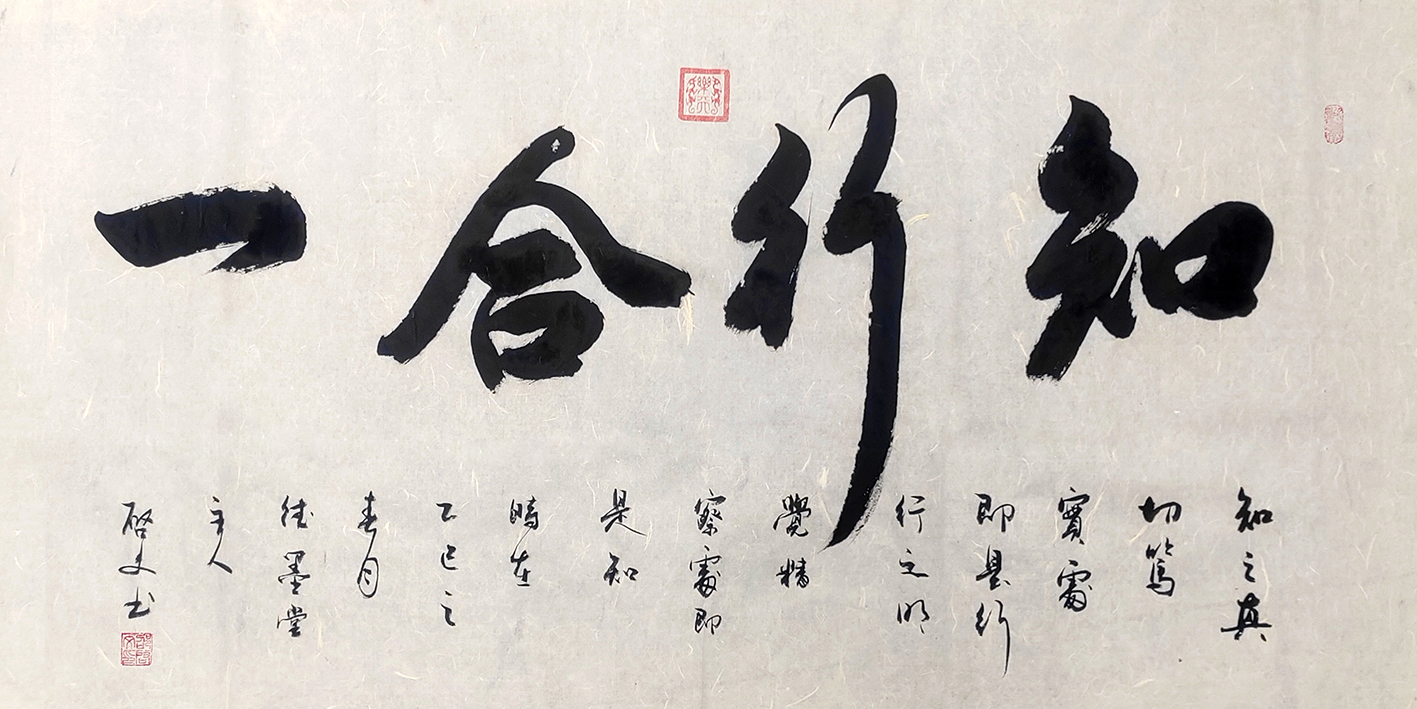 知行合一
知之真
切篤
實處
即是行
行之明
覺精
察處即
是知
時在
乙巳之
春月
德墨堂
主人
啓文书